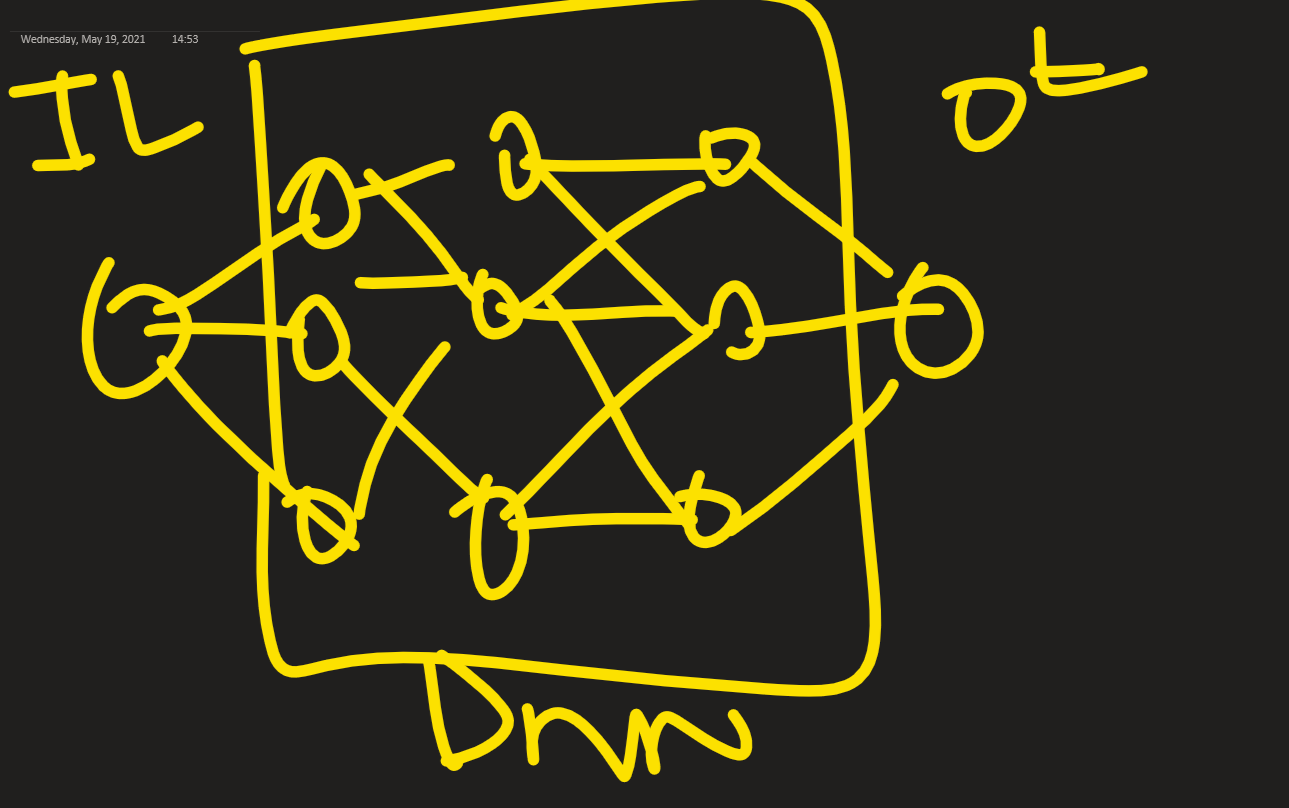 Wednesday, May 19, 2021 14:53
IL
Ot
Dnn